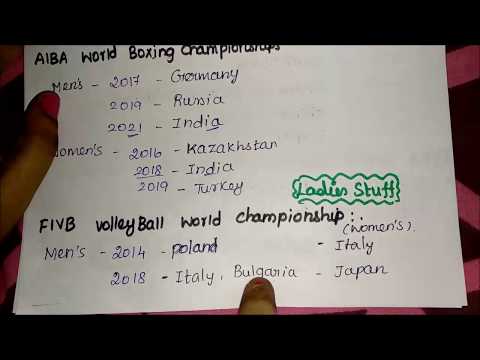 AIBA World Boxing Championships
Men's - 2017 - Germany
2019 - Russia
2021 - India
Women's - 2016 - Kazakhstan
2018 - India
2019 - Turkey
Ladies Stuff
FIVB VolleyBall World Championship :-
(Women's).
Men's - 2014 - Poland - Italy
2018 - Italy, Bulgaria - Japan